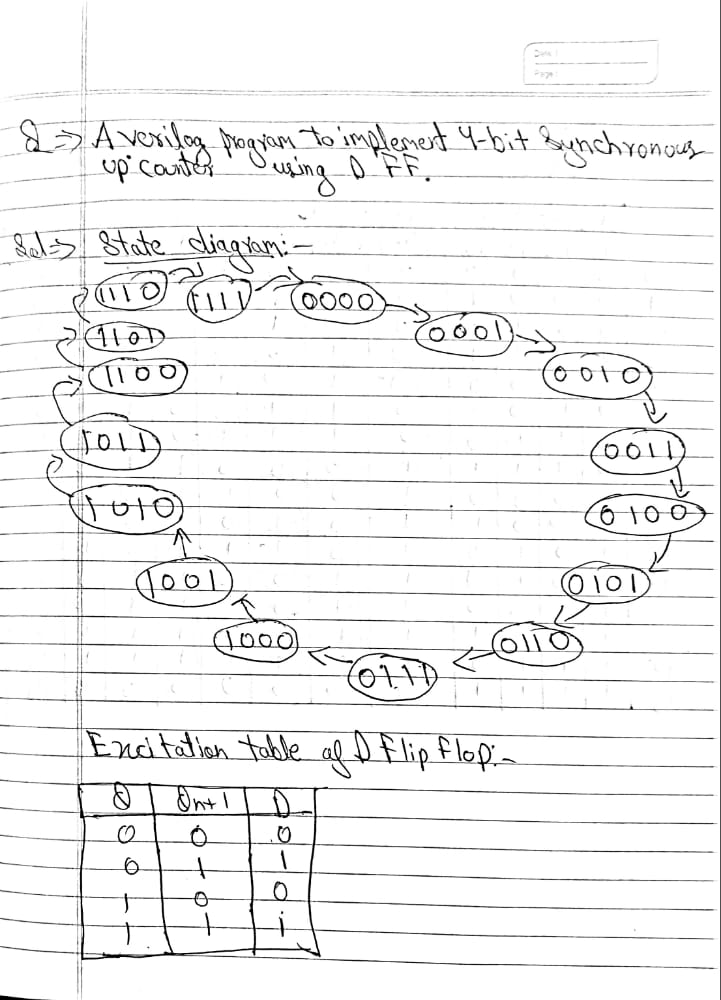 Date :
Page :
Q ⇒ A verilog program to implement 4-bit Synchronous
up counter using D FF.
Sol ⇒ State diagram:-
1110 1111 0000
0001
1101
1100 0010
1011 0011
1010 0100
1001 0101
1000 0110
0111
Excitation table of D flip flop:-
Q Qn+1 D
0 0 0
0 1 1
1 0 0
1 1 1